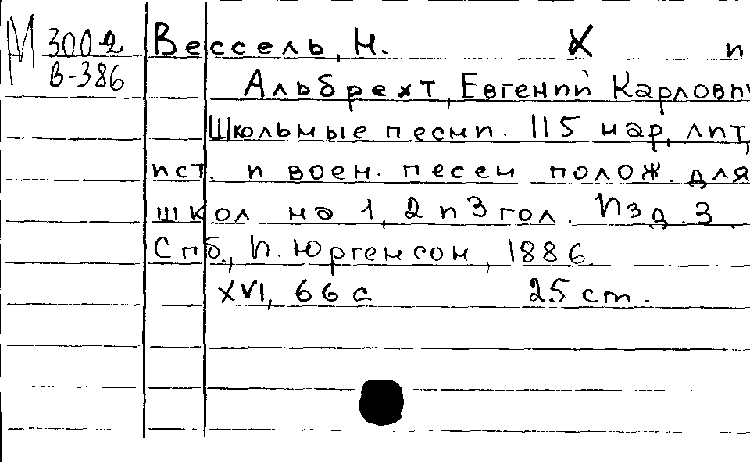 М 300 2 Вессель, Н. X и
В-386 Альбрехт, Евгений Карлови
Школьные песни. 115 нар, лит,
ист. и воен. песен полож. для
школ на 1, 2 и 3 гол. Изд. 3
Спб., И. Юргенсон, 1886.
XVI, 66 с 25 cm.